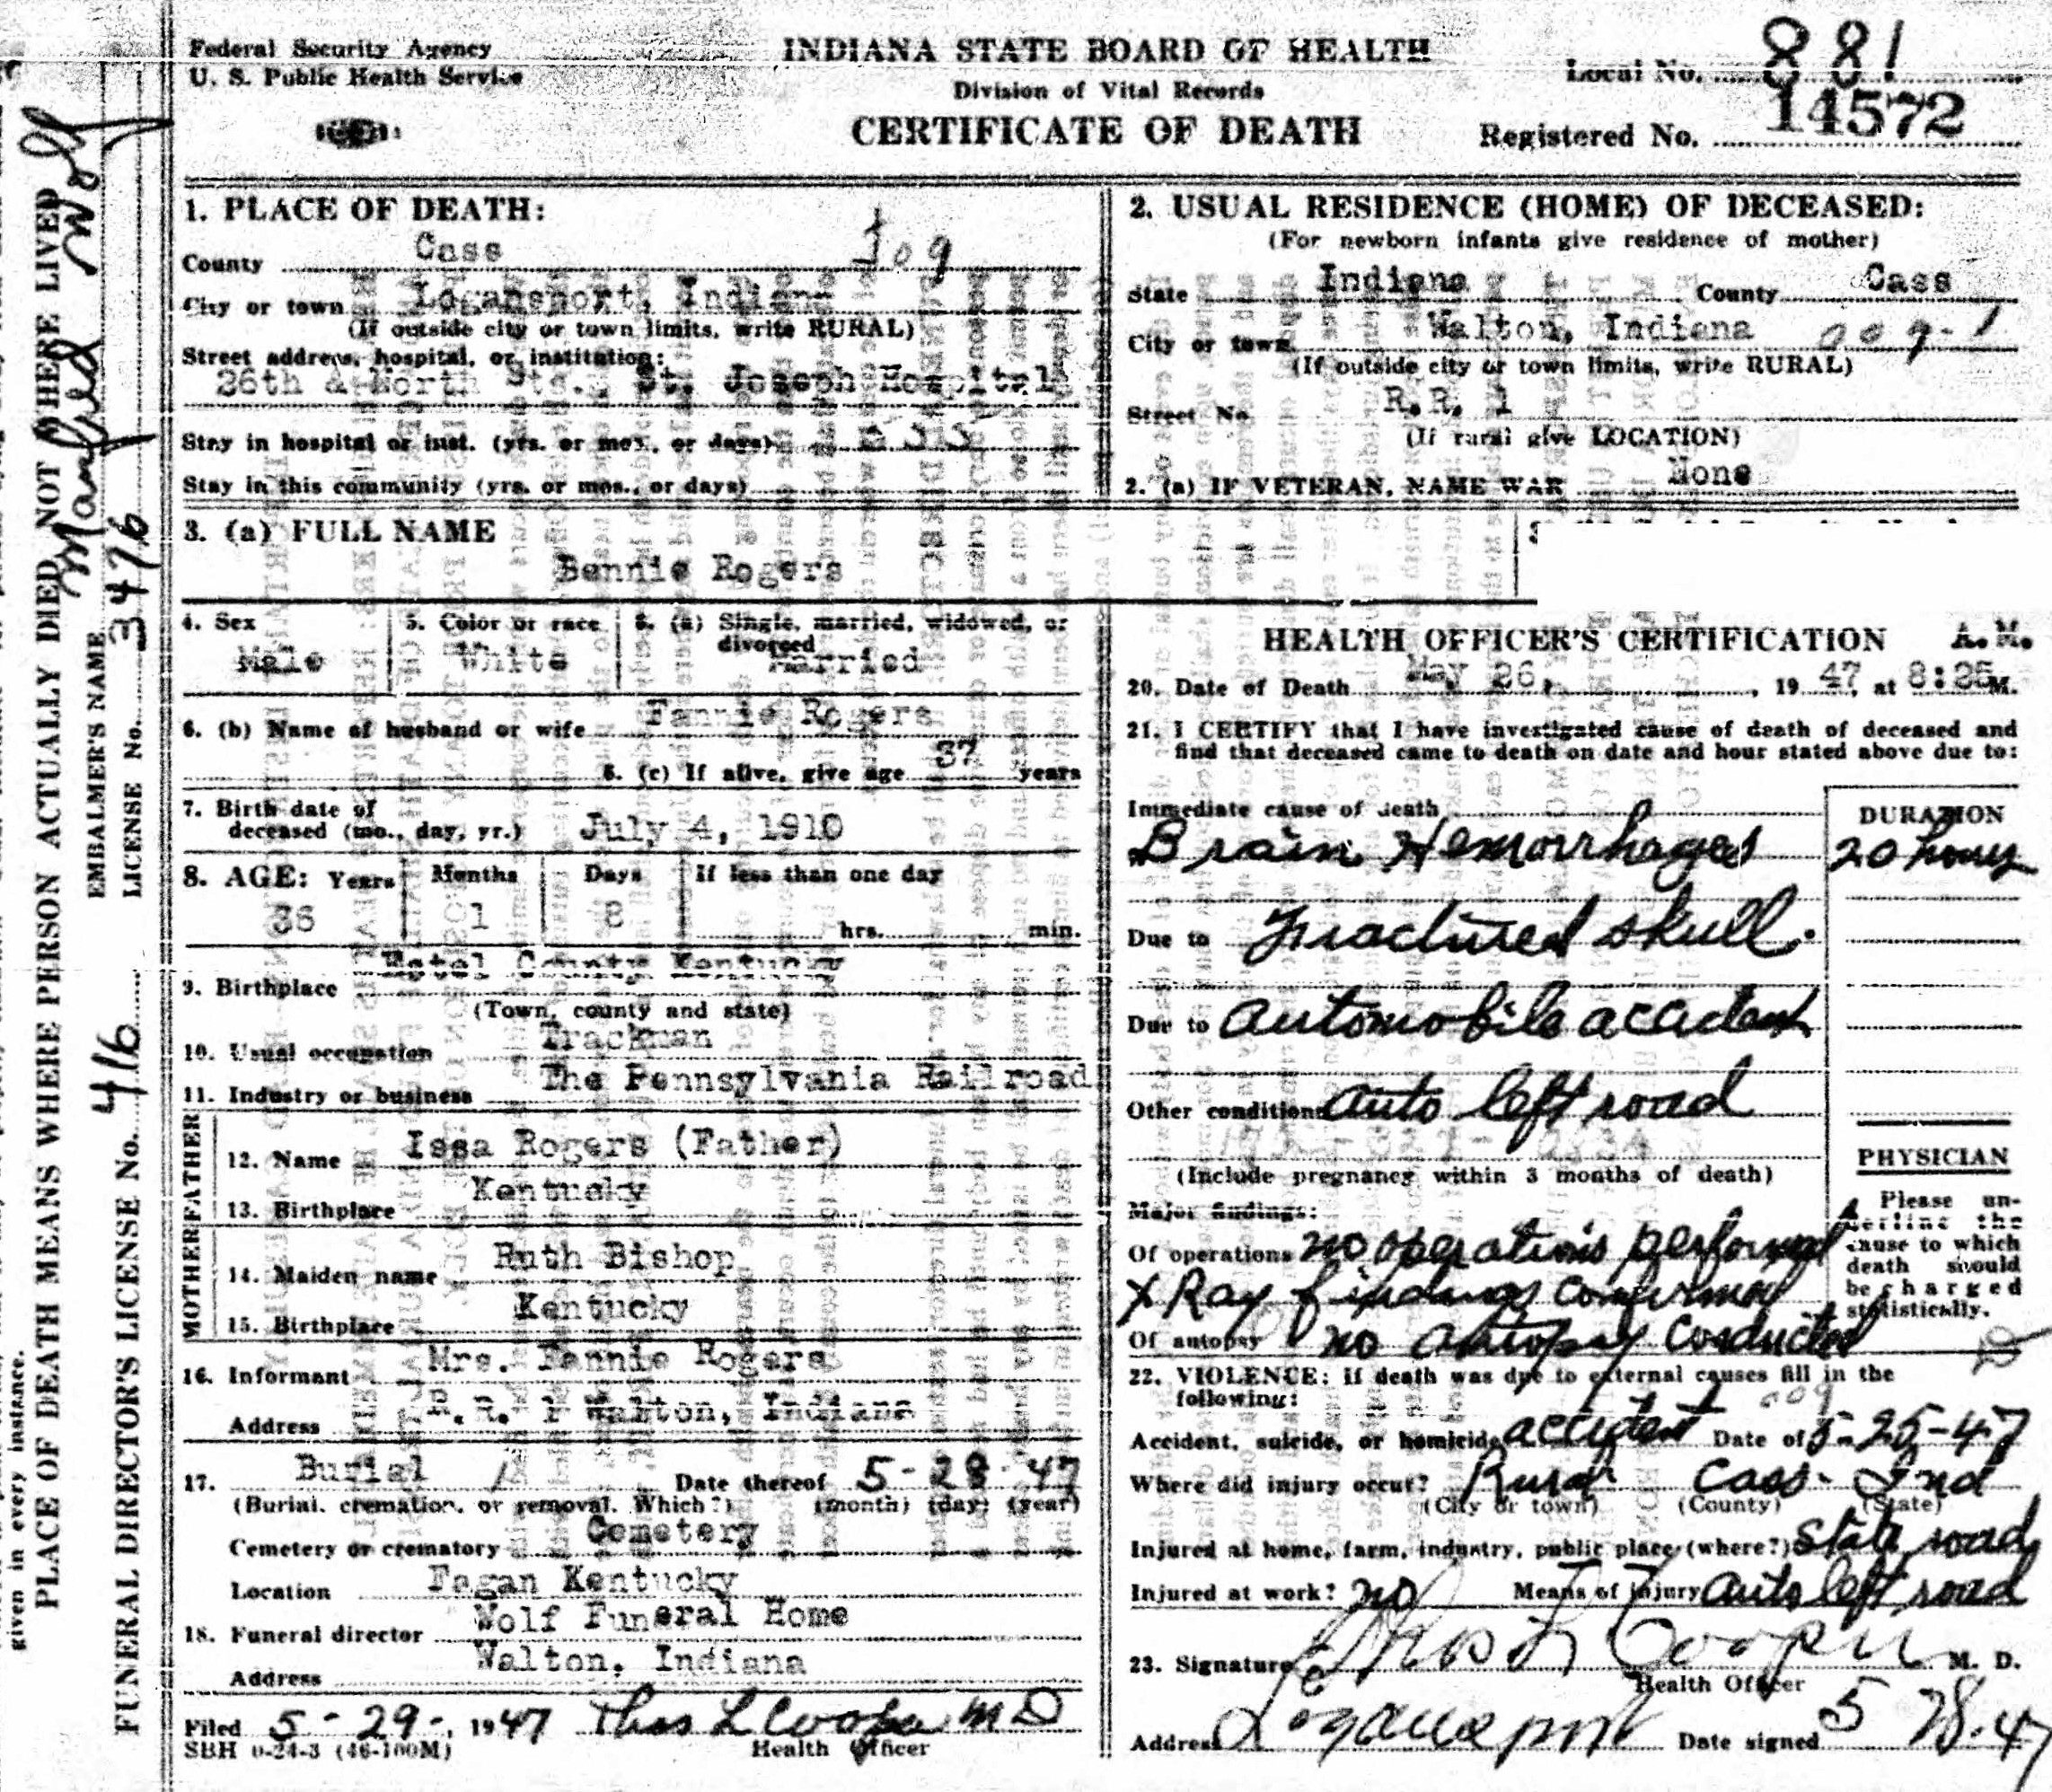 Federal Security Agency
U. S. Public Health Service
INDIANA STATE BOARD OF HEALTH
Division of Vital Records
CERTIFICATE OF DEATH
Local No. 881
Registered No. 14572
1. PLACE OF DEATH:
County Cass
City or town Logansport, Indiana
(If outside city or town limits, write RURAL)
Street address, hospital, or institution:
26th & North Sts., St. Joseph Hospital
Stay in hospital or inst. (yrs. or mos. or days)
Stay in this community (yrs. or mos., or days)
2. USUAL RESIDENCE (HOME) OF DECEASED:
(For newborn infants give residence of mother)
State Indiana County Cass
City or town Walton, Indiana 009-1
(If outside city or town limits, write RURAL)
Street No. R.R. 1
(If rural give LOCATION)
2. (a) IF VETERAN, NAME WAR None
3. (a) FULL NAME
Bennie Rogers
4. Sex Male
5. Color or race White
6. (a) Single, married, widowed, or divorced Married
6. (b) Name of husband or wife Fannie Rogers
6. (c) If alive, give age 37 years
7. Birth date of
deceased (mo., day, yr.) July 4, 1910
8. AGE: Years Months Days If less than one day
36 1 8 hrs. min.
9. Birthplace Estel County Kentucky
(Town, county and state)
10. Usual occupation Trackman
11. Industry or business The Pennsylvania Railroad
FATHER
12. Name Issa Rogers (Father)
13. Birthplace Kentucky
MOTHER
14. Maiden name Ruth Bishop
15. Birthplace Kentucky
16. Informant Mrs. Fannie Rogers
Address R.R. 1 Walton, Indiana
17. Burial Date thereof 5-28-47
(Burial, cremation, or removal. Which?) (month) (day) (year)
Cemetery or crematory Cemetery
Location Fagan Kentucky
18. Funeral director Wolf Funeral Home
Address Walton, Indiana
Filed 5-29-, 1947 Thos L Cooper MD
SBH 6-24-3 (46-100M) Health Officer
HEALTH OFFICER'S CERTIFICATION A.M.
20. Date of Death May 26, 1947, at 8:25 M.
21. I CERTIFY that I have investigated cause of death of deceased and
find that deceased came to death on date and hour stated above due to:
Immediate cause of death DURATION
Brain Hemorrhages 20 hours
Due to Fractured skull.
Due to Automobile accident
Other conditions auto left road
(Include pregnancy within 3 months of death)
Major findings:
Of operations no operations performed
X Ray findings confirmed
Of autopsy no autopsy conducted
PHYSICIAN
Please un-
derline the
cause to which
death should
be charged
statistically.
22. VIOLENCE: If death was due to external causes fill in the
following: 009
Accident, suicide, or homicide accident Date of 5-25-47
Where did injury occur? Rural Cass- Ind
(City or town) (County) (State)
Injured at home, farm, industry, public place (where?) State road
Injured at work? no Means of injury auto left road
23. Signature Thos L Cooper M. D.
Health Officer
Address Logansport Date signed 5 28-47
given in every instance.
PLACE OF DEATH MEANS WHERE PERSON ACTUALLY DIED NOT WHERE LIVED
EMBALMER'S NAME Manfied Wolf
LICENSE No. 3476
FUNERAL DIRECTOR'S LICENSE No. 416